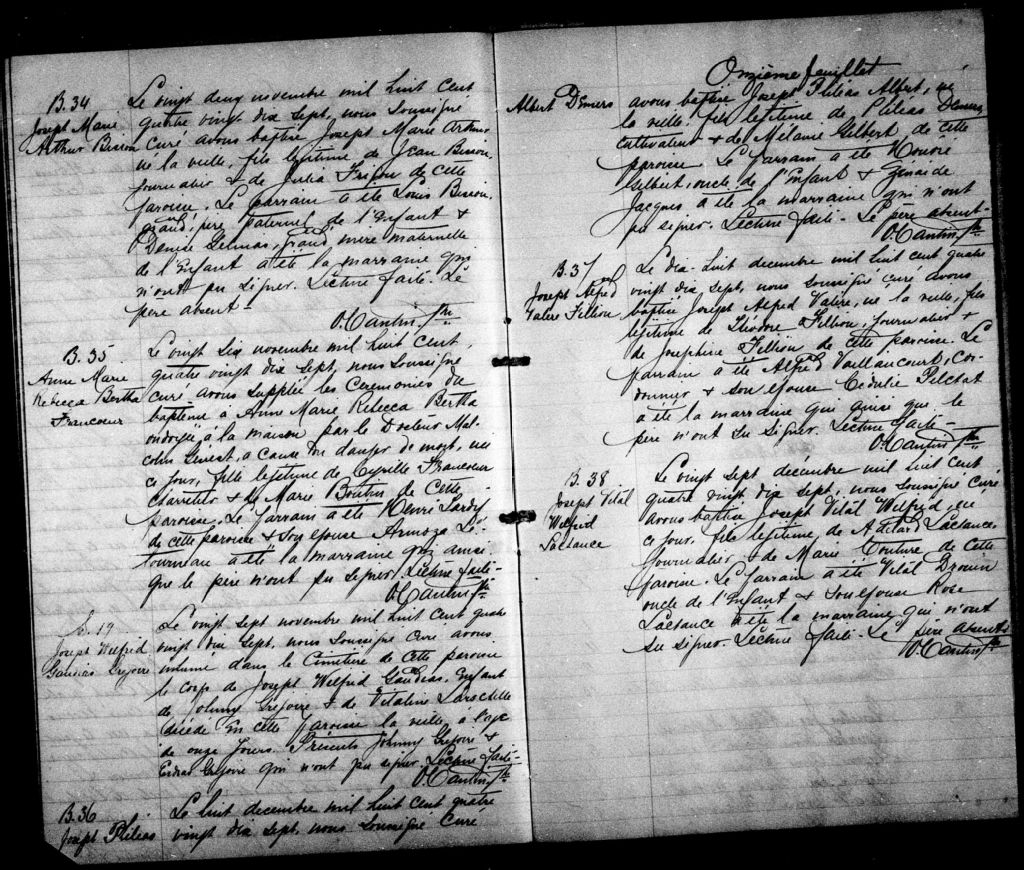 B. 34
Joseph Marie
Arthur Bisson
Le vingt deux novembre mil huit cent
quatre vingt dix sept, nous soussigné
curé avons baptisé Joseph Marie Arthur
né la veille, fils légitime de Jean Bisson,
journalier & de Julia de cette
paroisse. Le parrain a été Louis Bisson,
grand, père paternel de l'Enfant &
grand, mère maternelle
de l'Enfant a été la marraine qui
n'ont pu signer. Lecture faite. Le
père absent-
O. Cantin Ptre
B. 35
Anne Marie
Rebecca Bertha
Francoeur
Le vingt six novembre mil huit cent
quatre vingt dix sept, nous soussigné
curé avons supplée les Ceremonies du
baptême a Anne Marie Rebecca Bertha
ondoyée à la maison par le Docteur Mal-
colm a cause du danger de mort, née
ce jour, fille légitime de Cyrille Francoeur
charretier & de Marie Boutin de cette
paroisse. Le parrain a été Henri Tardif
de cette paroisse & son épouse Le-
tourneau a été la marraine qui ainsi
que le père n'ont pu signer. Lecture faite-
O. Cantin Ptre
S. 19
Joseph Wilfrid
Gaudias Gregoire
Le vingt sept novembre mil huit cent quatre
vingt dix sept, nous soussigné curé avons
inhumé dans le Cimetière de cette paroisse
le corps de Joseph Wilfrid Gaudias, Enfant
de Johnny Gregoire & de Vitaline
décédé En cette paroisse la veille a l'age
de onze jours. Présents Johnny Gregoire &
Gregoire qui n'ont pu signer. Lecture faite-
O. Cantin Ptre
B. 36
Joseph Pleleas
Le huit decembre mil huit cent quatre
vingt dix sept, nous soussigné Curé
Onzième feuillet
Albert Demers
avons baptisé Joseph Pleleas Albert, né
la veille, fils légitime de Pleleas Demers,
cultivateur & de Mélanie Gilbert de cette
paroisse. Le parrain a été Honoré
Gilbert, oncle de l'Enfant & Zenaide
Jacques a été la marraine qui n'ont
pu signer. Lecture faite- Le père absent-
O. Cantin Ptre
B. 37
Joseph Alfred
Valère Fillion
Le dix-huit decembre mil huit cent quatre
vingt dix sept, nous soussigné curé avons
baptisé Joseph Alfred Valère, né la veille, fils
légitime de Fillion, journalier &
de Josephine Fillion de cette paroisse. Le
parrain a été Alfred Vaillancourt, cor-
donnier & son épouse Cedulie Pelchat
a été la marraine qui ainsi que le
père n'ont su signer. Lecture faite-
O. Cantin Ptre
B. 38
Joseph Vital
Wilfrid
Lactance
Le vingt sept decembre mil huit cent
quatre vingt dix sept, nous soussigné curé
avons baptisé Joseph Vital Wilfrid, né
ce jour, fils légitime de Lactance
journalier & de Marie Couture de cette
paroisse. Le parrain a été Vital Drouin
oncle de l'Enfant & son épouse Rose
Lactance a été la marraine qui n'ont
su signer. Lecture faite- Le père absent-
O. Cantin Ptre